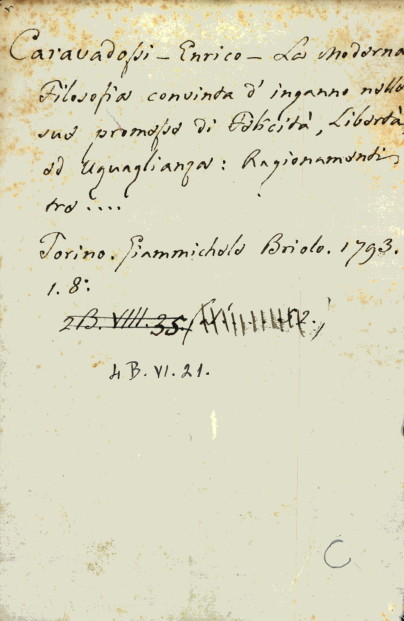 Caravadossi - Enrico - La Moderna
Filosofia convinta d' inganno nelle
sue promesse di Felicità, Libertà,
ed Uguaglianza: Ragionamenti
tre....
Torino. Giammichele Briolo. 1793.
1. 8.°
2B. VIII. 35.
4 B. VI. 21.
C